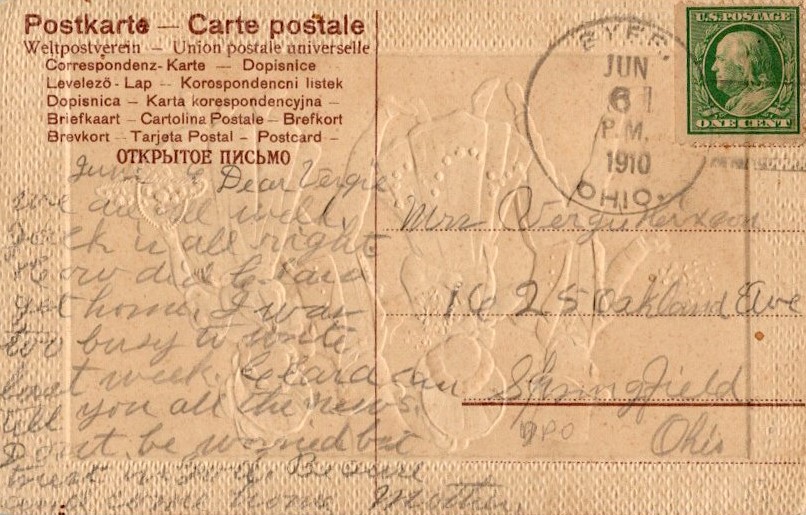 Postkarte — Carte postale
Weltpostverein — Union postale universelle
Correspondenz-Karte — Dopisnice
Levelező-Lap — Korospondencni listek
Dopisnica — Karta korespondencyjna —
Briefkaart — Cartolina Postale — Brefkort
Brevkort — Tarjeta Postal — Postcard —
ОТКРЫТОЕ ПИСЬМО
U.S. POSTAGE
ONE CENT
JUN
6
P.M.
1910
OHIO
June 6 Dear Vergie
we are all well
is all right
How did Clara
get home. I was
too busy to write
last week. Clara can
tell you all the news.
Dont be worried but
trust
and come home Mother.
Mrs
1625 Oakland Ave
Springfield
Ohio
DPO